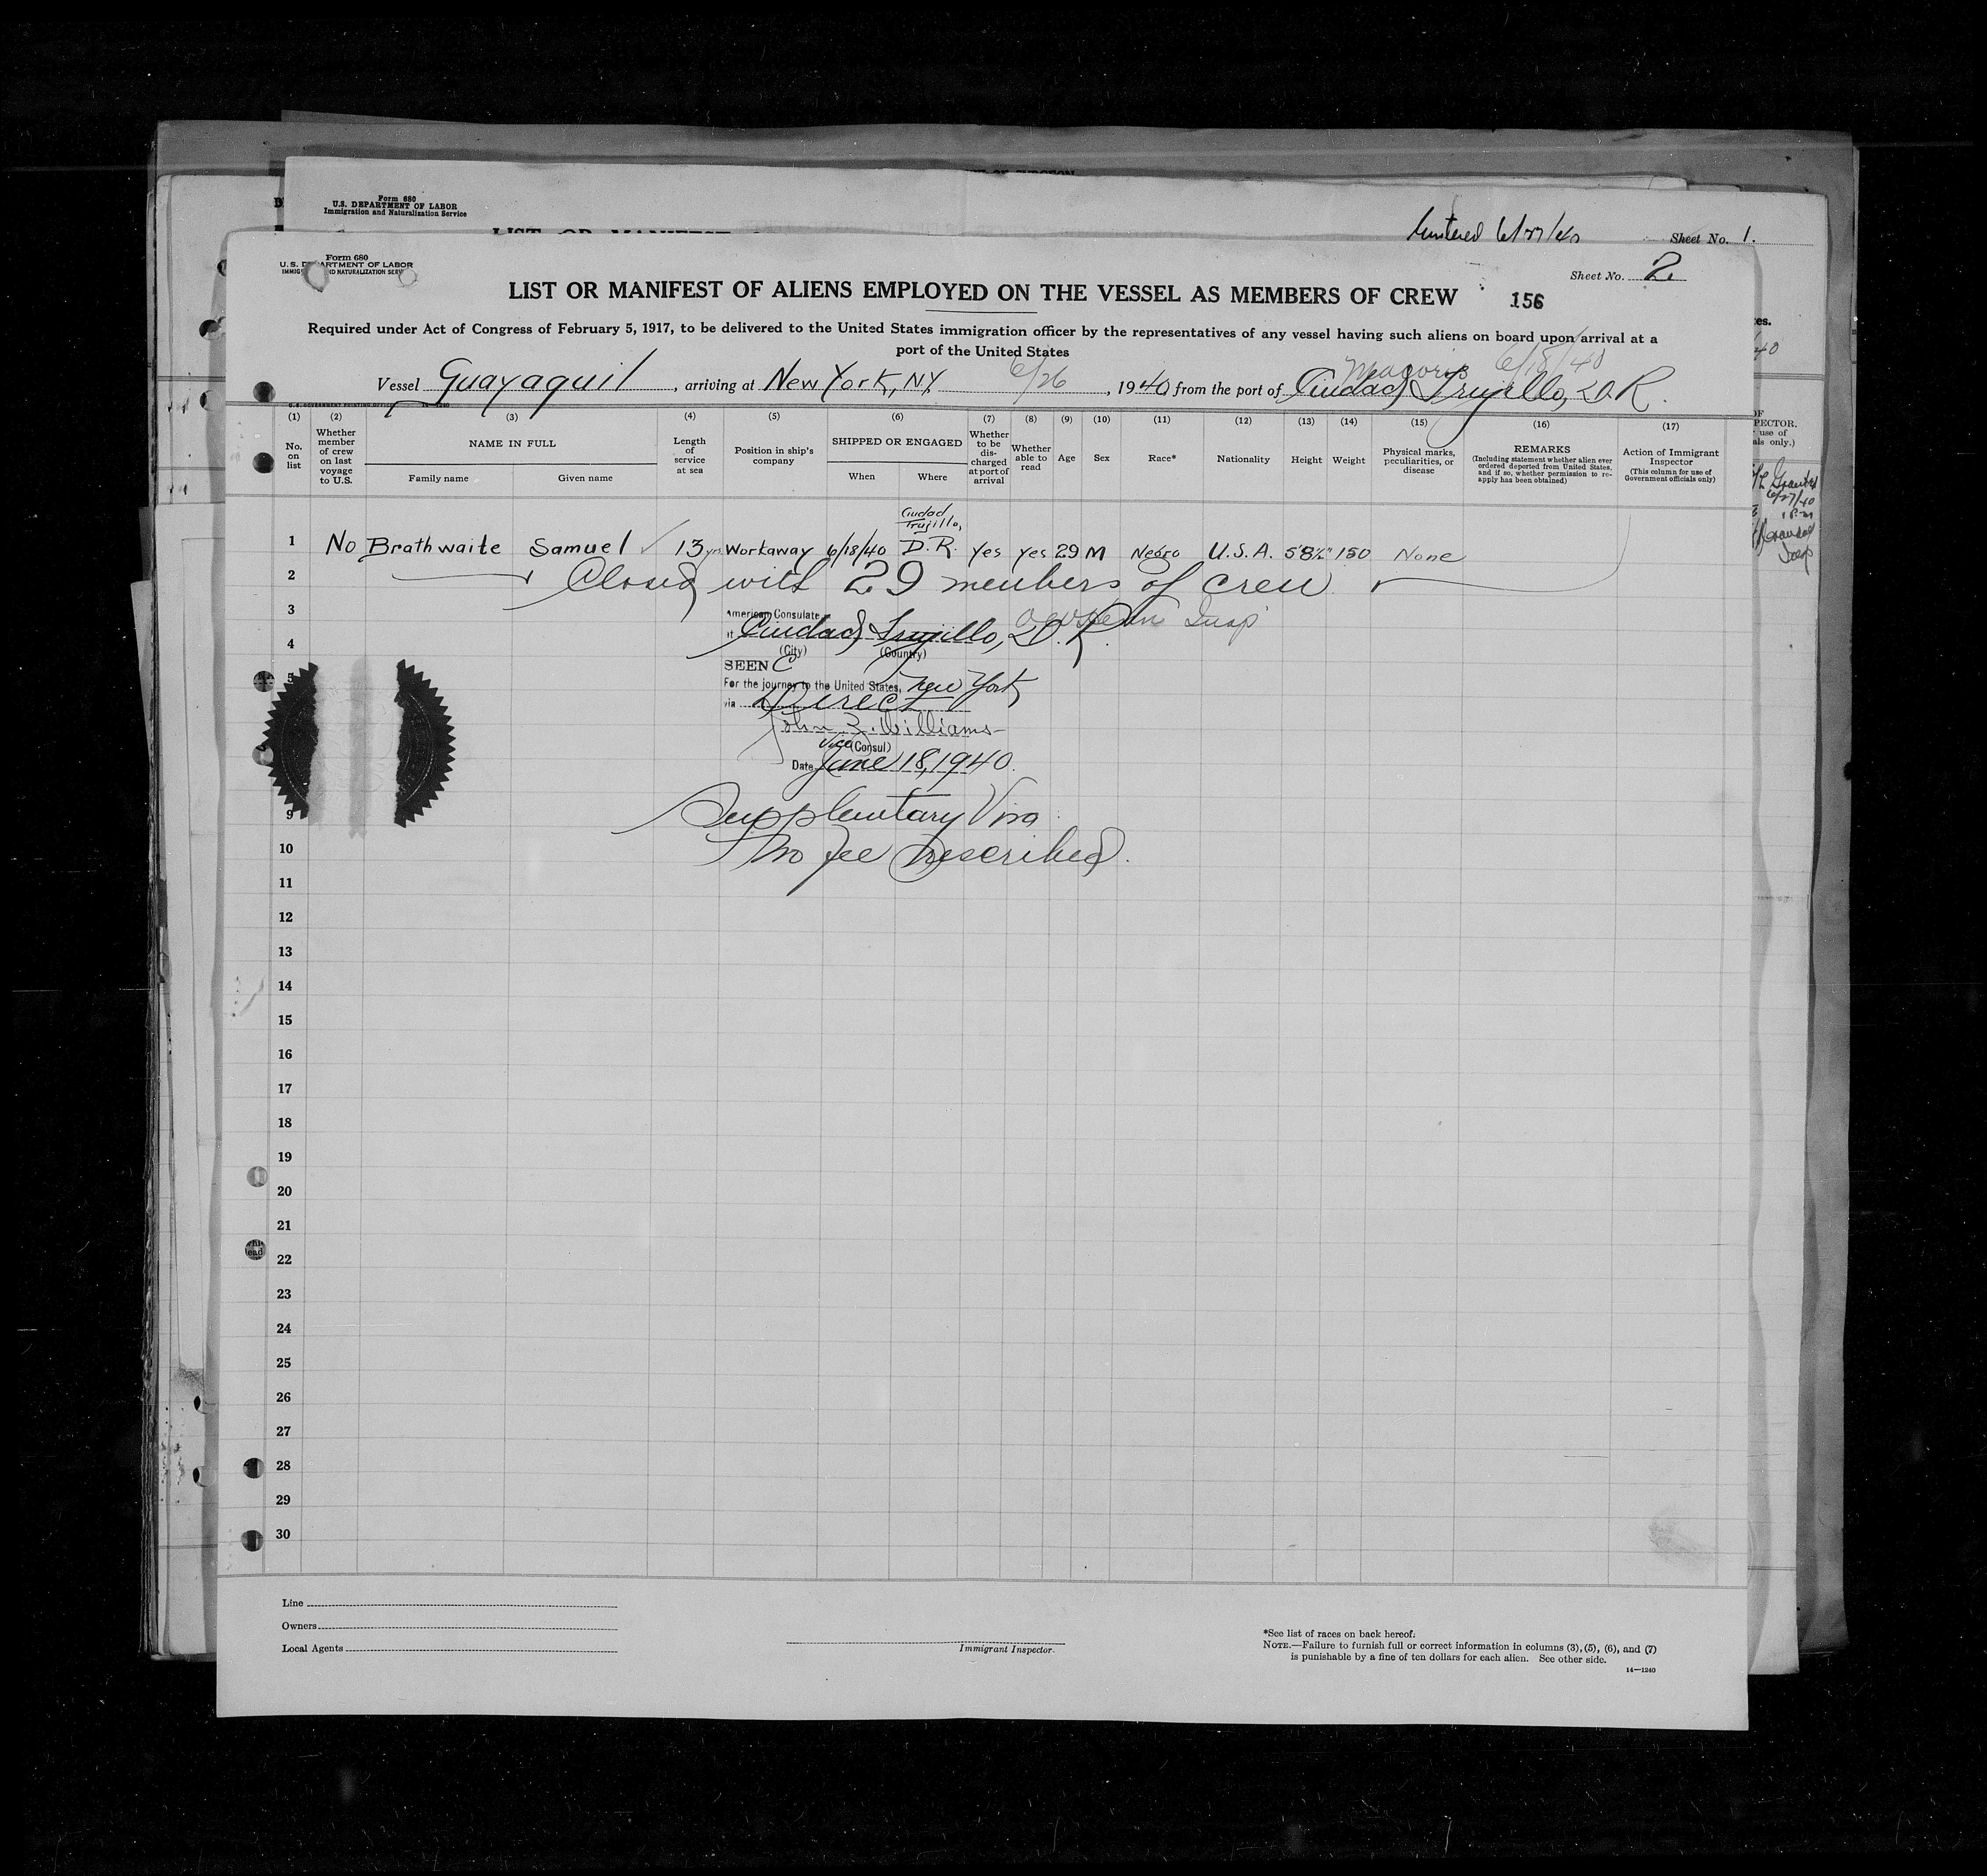 Form 680
U.S. DEPARTMENT OF LABOR
Immigration and Naturalization Service
Mustered 6/27/40
Sheet No. 1.
Form 680
U.S. DEPARTMENT OF LABOR
IMMIGRATION AND NATURALIZATION SERVICE
Sheet No. 2.
LIST OR MANIFEST OF ALIENS EMPLOYED ON THE VESSEL AS MEMBERS OF CREW
156
Required under Act of Congress of February 5, 1917, to be delivered to the United States immigration officer by the representatives of any vessel having such aliens on board upon arrival at a
port of the United States
Macoris 6/18/40
Vessel Guayaquil, arriving at New York, N.Y. 6/26, 1940, from the port of Ciudad Trujillo, D.R.
U.S. GOVERNMENT PRINTING OFFICE 14—1240
(1) (2) (3) (4) (5) (6) (7) (8) (9) (10) (11) (12) (13) (14) (15) (16) (17)
No. on list
Whether member of crew on last voyage to U.S.
NAME IN FULL
Family name
Given name
Length of service at sea
Position in ship's company
SHIPPED OR ENGAGED
When
Where
Whether to be discharged at port of arrival
Whether able to read
Age
Sex
Race*
Nationality
Height
Weight
Physical marks, peculiarities, or disease
REMARKS
(Including statement whether alien ever ordered deported from United States, and if so, whether permission to reapply has been obtained)
Action of Immigrant Inspector
(This column for use of Government officials only)
Ciudad
Trujillo,
1 No Brathwaite Samuel ✓ 13 yrs Workaway 6/18/40 D.R. Yes Yes 29 M Negro U.S.A. 5'8½" 150 None
2 Closed with 29 members of crew
3 American Consulate
4 at Ciudad Trujillo, D.R.
(City) (Country)
SEEN
5 For the journey to the United States, New York
via Direct
John Z. Williams
Vice (Consul)
Date June 18, 1940.
9 Supplentary Visa
10 No fee Prescribed.
11
12
13
14
15
16
17
18
19
20
21
22
23
24
25
26
27
28
29
30
Line
Owners
Local Agents
Immigrant Inspector.
*See list of races on back hereof.
NOTE.—Failure to furnish full or correct information in columns (3), (5), (6), and (7)
is punishable by a fine of ten dollars for each alien. See other side.
14—1240